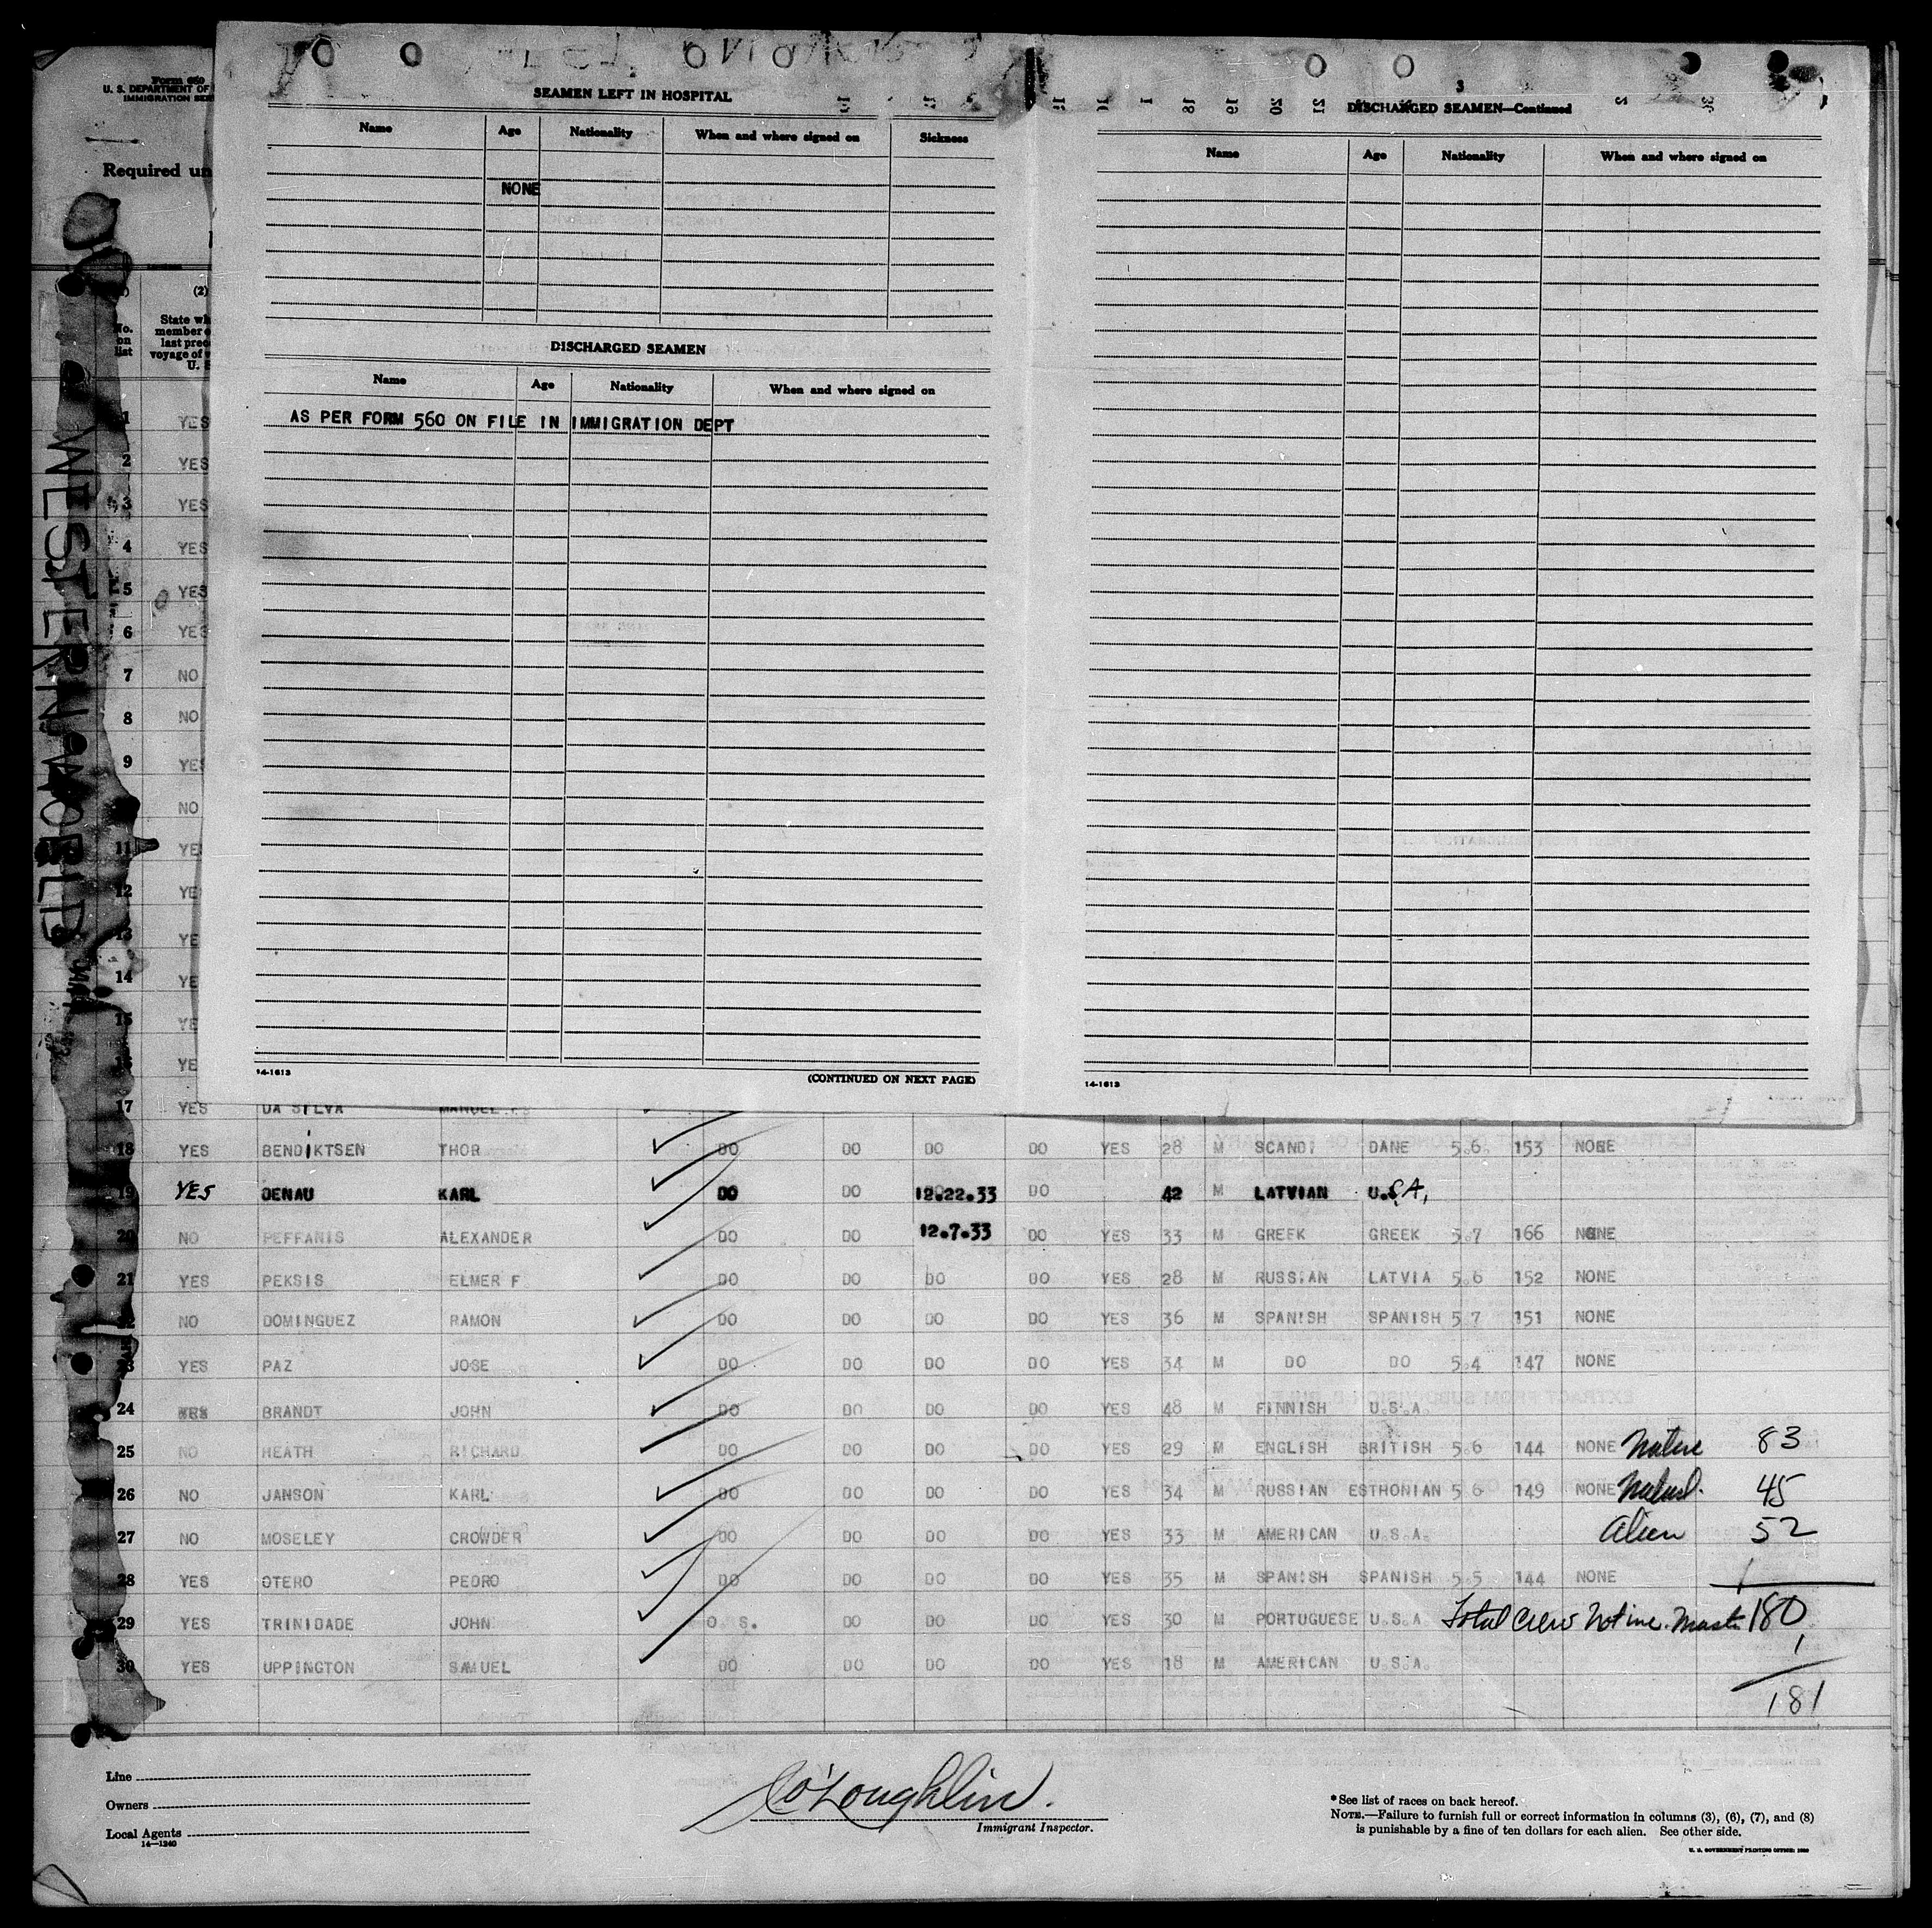 Form 680
U. S. DEPARTMENT OF
IMMIGRATION SER
Required un
SEAMEN LEFT IN HOSPITAL
Name Age Nationality When and where signed on Sickness
NONE
DISCHARGED SEAMEN
Name Age Nationality When and where signed on
AS PER FORM 560 ON FILE IN IMMIGRATION DEPT
14-1613
(CONTINUED ON NEXT PAGE)
3
DISCHARGED SEAMEN—Continued
Name Age Nationality When and where signed on
14-1613
WESTERN WORLD
(2)
No. on list
State wh
member o
last prec
voyage of v
U. S
1 YES
2 YES
3 YES
4 YES
5 YES
6 YES
7 NO
8 NO
9 YES
NO
11 YE
12 YE
13 YE
14 YE
15 YE
YE
17 YES DA SILVA MANUEL
18 YES BENDIKTSEN THOR DO DO DO DO YES 28 M SCANDI DANE 5.6. 153 NONE
19 YES DENAU KARL DO DO 12.22.33 DO 42 M LATVIAN U.S.A.
20 NO PEFFANIS ALEXANDER DO DO 12.7.33 DO YES 33 M GREEK GREEK 5.7 166 NONE
21 YES PEKSIS ELMER F. DO DO DO DO YES 28 M RUSSIAN LATVIA 5.6 152 NONE
NO DOMINGUEZ RAMON DO DO DO DO YES 36 M SPANISH SPANISH 5 7 151 NONE
YES PAZ JOSE DO DO DO DO YES 34 M DO DO 5.4 147 NONE
24 YES BRANDT JOHN DO DO DO DO YES 48 M FINNISH U.S.A.
25 NO HEATH RICHARD DO DO DO DO YES 29 M ENGLISH BRITISH 5.6 144 NONE Native 83
26 NO JANSON KARL DO DO DO DO YES 34 M RUSSIAN ESTHONIAN 5 6 149 NONE Natusl. 45
27 NO MOSELEY CROWDER DO DO DO DO YES 33 M AMERICAN U.S.A. Alien 52
28 YES OTERO PEDRO DO DO DO DO YES 35 M SPANISH SPANISH 5.5 144 NONE
29 YES TRINIDADE JOHN O. S. DO DO DO YES 30 M PORTUGUESE U.S.A Total Crew Not inc. Mast. 180
1
30 YES UPPINGTON SAMUEL DO DO DO DO YES 18 M AMERICAN U.S.A.
181
Line
Owners
Local Agents
14—1240
O'Loughlin.
Immigrant Inspector.
* See list of races on back hereof.
NOTE.—Failure to furnish full or correct information in columns (3), (6), (7), and (8)
is punishable by a fine of ten dollars for each alien. See other side.
U. S. GOVERNMENT PRINTING OFFICE: 1930